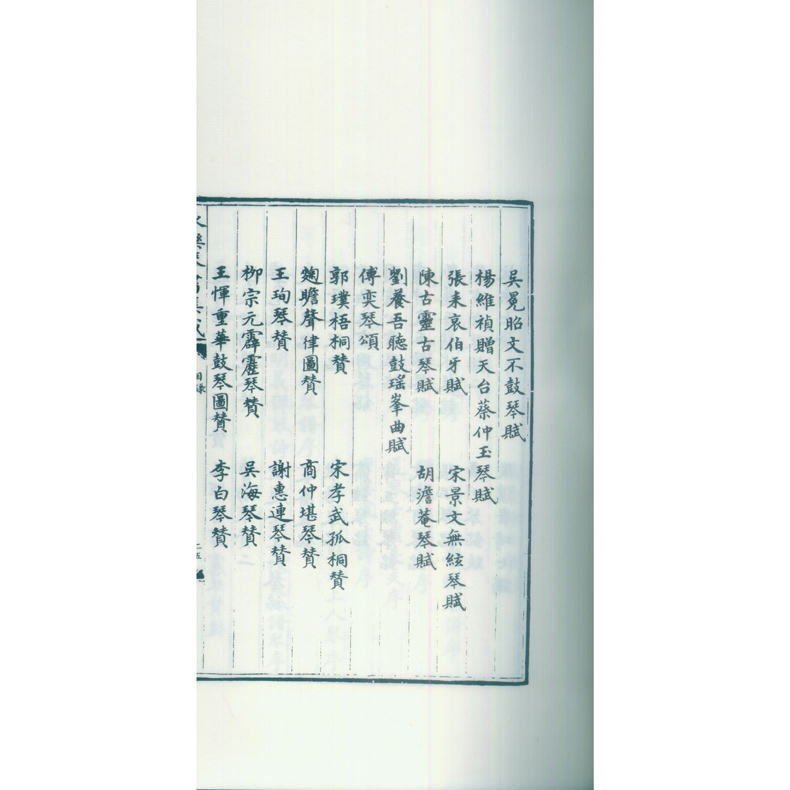 吳冕昭文不鼓琴賦
楊維禎贈天台蔡仲玉琴賦
張耒哀伯牙賦 宋景文無絃琴賦
陳古靈古琴賦 胡澹菴琴賦
劉養吾聽鼓瑤峯曲賦
傅奕琴頌
郭璞梧桐贊 宋孝武孤桐贊
麴瞻聲律圖贊 商仲堪琴贊
王珣琴贊 謝惠連琴贊
柳宗元霹靂琴贊 吳海琴贊
王惲重華鼓琴圖贊 李白琴贊
目錄